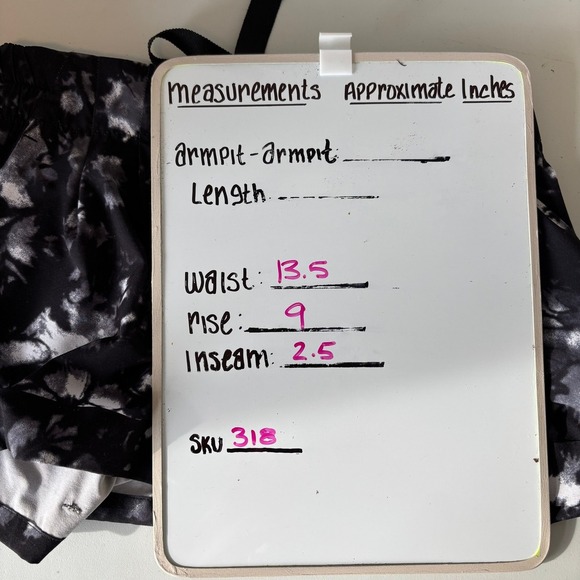 measurements Approximate Inches
armpit-armpit
Length
waist: 13.5
rise: 9
Inseam: 2.5
SKU 318